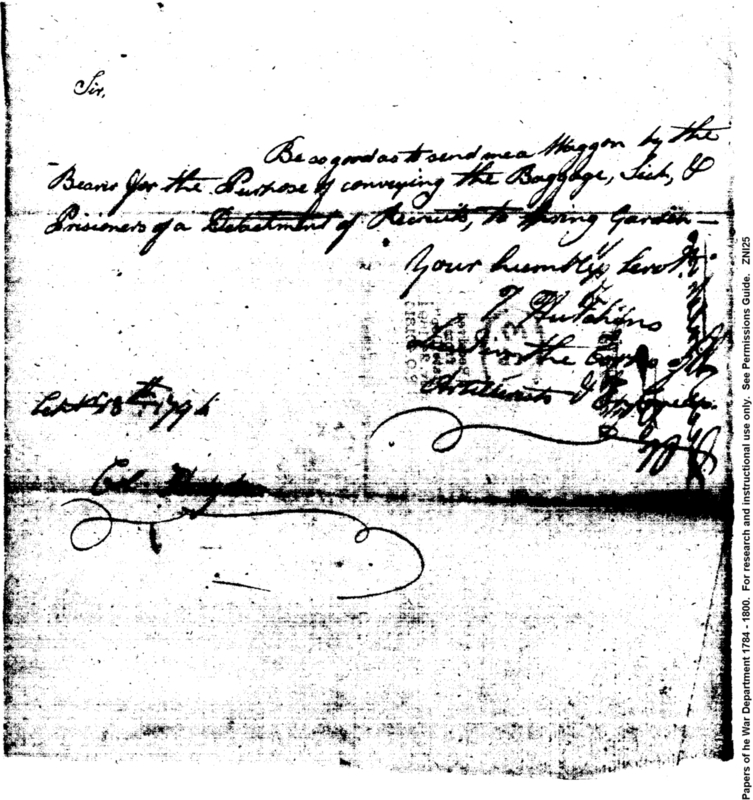 Sir,
Be so good as to send me a Waggon by the
Bearer for the Purpose of conveying the Baggage, Sick, &
Prisoners of a Detachment of Recruits, to Spring Garden —
Your humble Servt.
Hutchins
in the Corps of
Artillerists &
18th 1794
Col.
Papers of he War Department 1784 - 1800. For research and instructional use only. See Permissions Guide. ZNI25